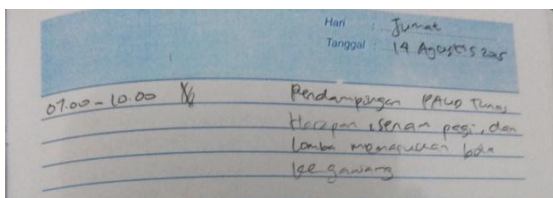 Hari : Jumat
Tanggal : 14 Agustus 2015
07.00 - 10.00 Pendampingan PAUD Tunas
Harapan, senam pagi, dan
Lomba memasukkan bola
ke gawang